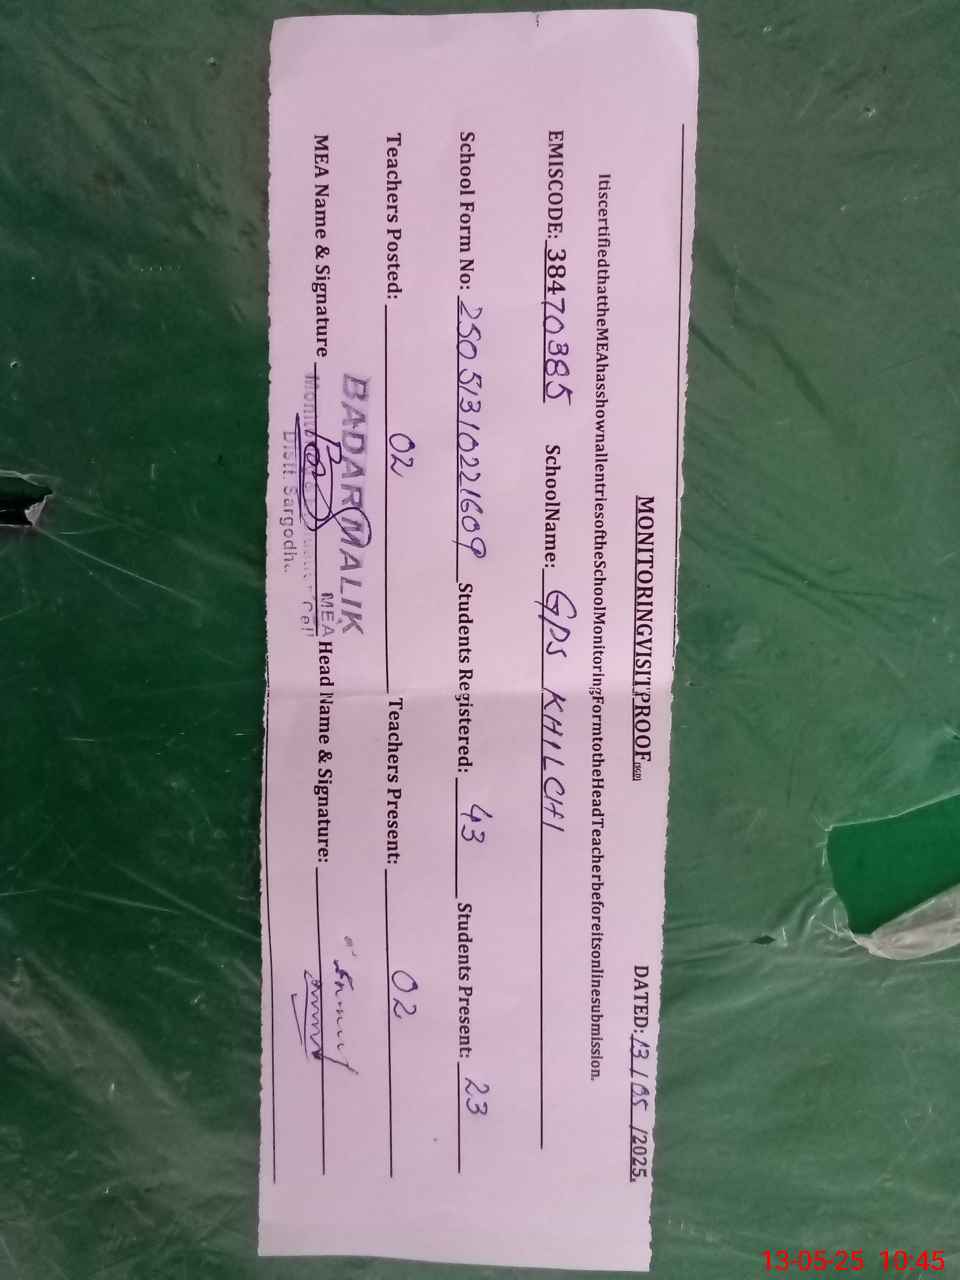 MONITORINGVISITPROOF(SGD) DATED: 13/05/2025.
ItiscertifiedthattheMEAhasshownallentriesoftheSchoolMonitoringFormtotheHeadTeacherbeforeitsonlinesubmission.
EMISCODE: 38470385 SchoolName: GPS KHILCHI
School Form No: 25051310221609 Students Registered: 43 Students Present: 23
Teachers Posted: 02 Teachers Present: 02
BADAR MALIK
MEA
MEA Name & Signature Head Name & Signature:
Distt. Sargodha
13-05-25 10:45